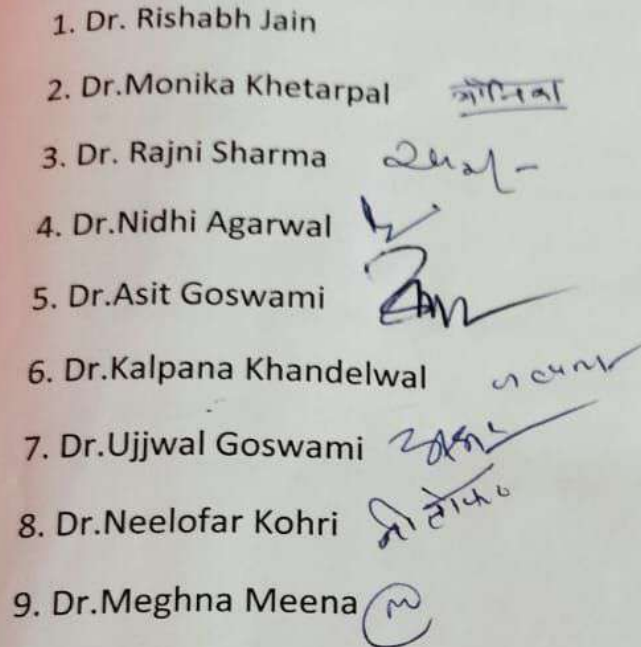 1. Dr. Rishabh Jain
2. Dr.Monika Khetarpal मोनिका
3. Dr. Rajni Sharma
4. Dr.Nidhi Agarwal
5. Dr.Asit Goswami
6. Dr.Kalpana Khandelwal
7. Dr.Ujjwal Goswami
8. Dr.Neelofar Kohri
9. Dr.Meghna Meena